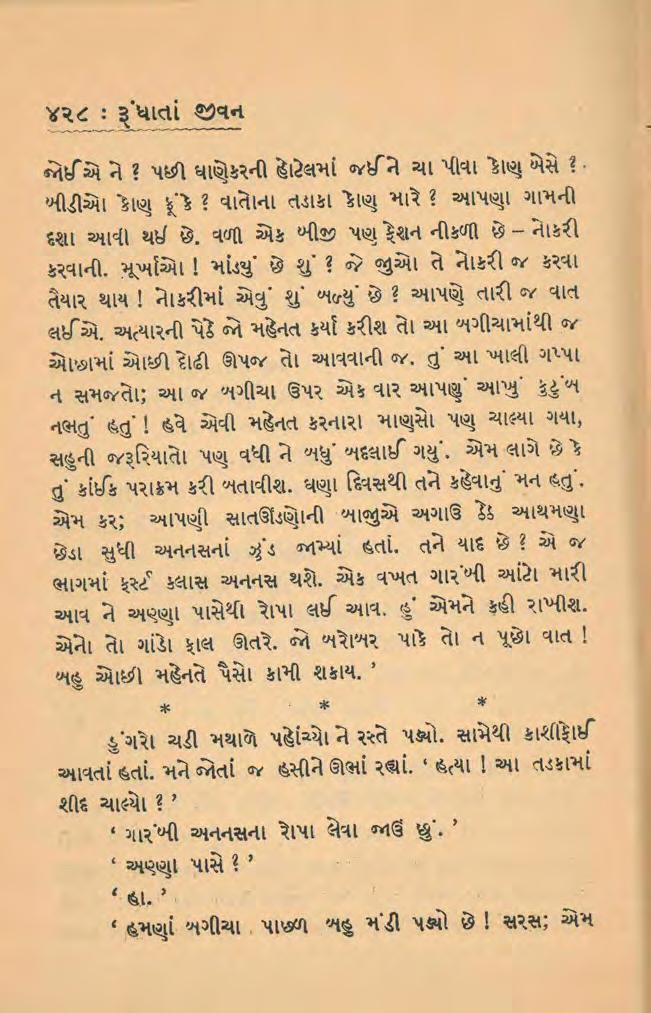 ૪૨૮ : રૂંધાતાં જીવન
જોઈએ ને ? પછી ઘાણેકરની હોટેલમાં જઈને ચા પીવા કોણ બેસે ?
બીડીઓ કોણ ફૂંકે ? વાતોના તડાકા કોણ મારે ? આપણા ગામની
દશા આવી થઈ છે. વળી એક બીજી પણ ફેશન નીકળી છે – નોકરી
કરવાની. મૂર્ખાઓ ! માંડ્યું છે શું ? જે જુઓ તે નોકરી જ કરવા
તૈયાર થાય ! નોકરીમાં એવું શું બળ્યું છે ? આપણે તારી જ વાત
લઈએ. અત્યારની પેઠે જો મહેનત કર્યા કરીશ તો આ બગીચામાંથી જ
ઓછામાં ઓછી દોઢી ઊપજ તો આવવાની જ. તું આ ખાલી ગપ્પા
ન સમજતો; આ જ બગીચા ઉપર એક વાર આપણું આખું કુટુંબ
નભતું હતું ! હવે એવી મહેનત કરનારા માણસો પણ ચાલ્યા ગયા,
સહુની જરૂરિયાતો પણ વધી ને બધું બદલાઈ ગયું. એમ લાગે છે કે
તું કાંઈક પરાક્રમ કરી બતાવીશ. ઘણા દિવસથી તને કહેવાનું મન હતું.
એમ કર; આપણી સાતઊંડણોની બાજુએ અગાઉ ઠેઠ આથમણા
છેડા સુધી અનનસનાં ઝુંડ જામ્યાં હતાં. તને યાદ છે ? એ જ
ભાગમાં ફર્સ્ટ કલાસ અનનસ થશે. એક વખત ગારંબી આંટો મારી
આવ ને અણ્ણા પાસેથી રોપા લઈ આવ. હું એમને કહી રાખીશ.
એનો તો ગાંડો ફાલ ઊતરે. જો બરોબર પાકે તો ન પૂછો વાત !
બહુ ઓછી મહેનતે પૈસો કામી શકાય. ’
* * *
ડુંગરો ચડી મથાળે પહોંચ્યો ને રસ્તે પડ્યો. સામેથી કાશીફોઈ
આવતાં હતાં. મને જોતાં જ હસીને ઊભાં રહ્યાં. ‘ હત્યા ! આ તડકામાં
શીદ ચાલ્યો ? ’
‘ ગારંબી અનનસના રોપા લેવા જાઉં છું. ’
‘ અણ્ણા પાસે ? ’
‘ હા. ’
‘ હમણાં બગીચા પાછળ બહુ મંડી પડ્યો છે ! સરસ; એમ